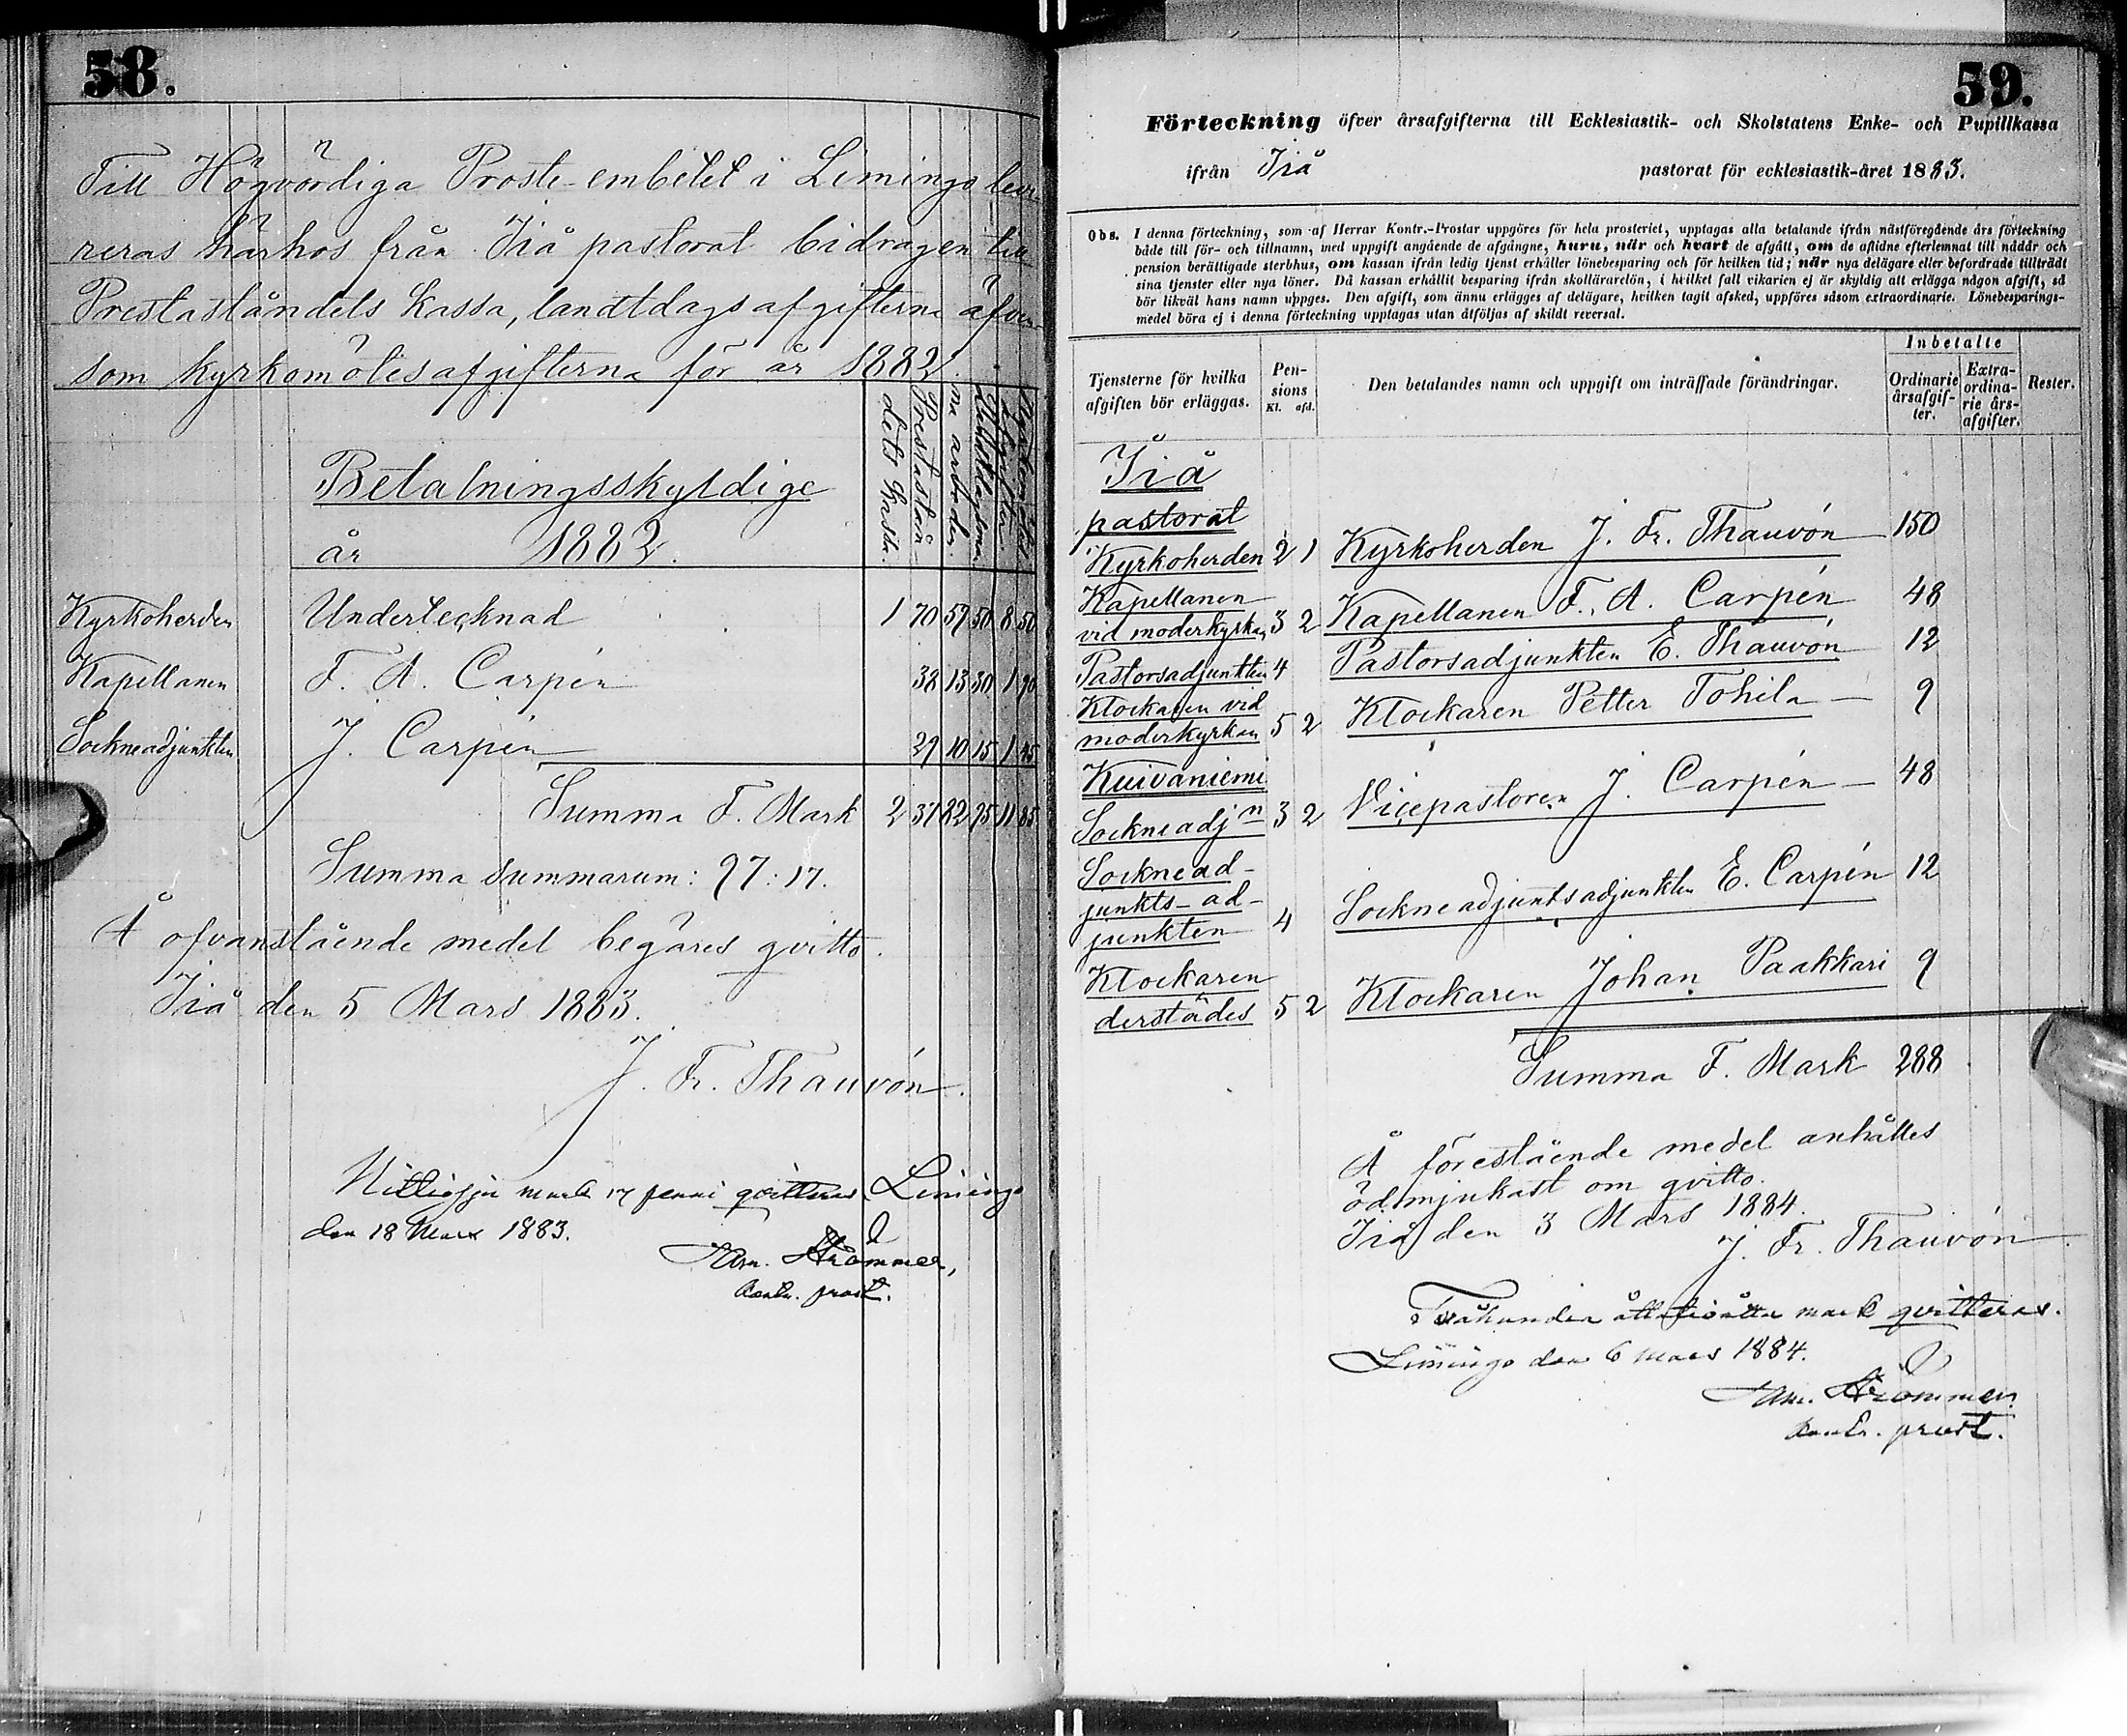 58.
Till Högvördiga Proste-embetet i Limingo leve-
reras härhos från Iiå pastorat bidragen till
Prestaståndets kassa, landtdagsafgifterna äfven-
som kyrkomötesafgifterna för år 1882.
Betalningsskyldige
år 1882.
Prestastån-
dets kassa.
Kyrkoherden Undertecknad 1 70 59 50 8 50
Kapellanen F. A. Carpén 38 13 30 1 90
Sockneadjunkten J. Carpén 29 10 15 1 45
Summa F. Mark 2 37 82 95 11 85
Summa summarum: 97:17.
Å ofvanstående medel begäres qvitto.
Iiå den 5 Mars 1883.
J. Fr. Thauvón.
Nittiosju mark 17 penni qvitteras. Limingo
den 18 Mars 1883.
Strömmer,
Kontr. prost.
59.
Förteckning öfver årsafgifterna till Ecklesiastik- och Skolstatens Enke- och Pupillkassa
ifrån Iiå pastorat för ecklesiastik-året 1883.
Obs. I denna förteckning, som af Herrar Kontr.-Prostar uppgöres för hela prosteriet, upptagas alla betalande ifrån nästföregående års förteckning
både till för- och tillnamn, med uppgift angående de afgångne, huru, när och hvart de afgått, om de aflidne efterlemnat till nådår och
pension berättigade sterbhus, om kassan ifrån ledig tjenst erhåller lönebesparing och för hvilken tid; när nya delägare eller befordrade tillträdt
sina tjenster eller nya löner. Då kassan erhållit besparing ifrån skollärarelön, i hvilket fall vikarien ej är skyldig att erlägga någon afgift, så
bör likväl hans namn uppges. Den afgift, som ännu erlägges af delägare, hvilken tagit afsked, uppföres såsom extraordinarie. Lönebesparings-
medel böra ej i denna förteckning upptagas utan åtföljas af skildt reversal.
Tjensterne för hvilka
afgiften bör erläggas.
Pen-
sions
Kl. afd.
Den betalandes namn och uppgift om inträffade förändringar.
Inbetalte
Ordinarie
årsafgif-
ter.
Extra-
ordina-
rie års-
afgifter.
Rester.
Iiå
pastorat
Kyrkoherden 2 1 Kyrkoherden J. Fr. Thauvón 150
Kapellanen
vid moderkyrkan 3 2 Kapellanen F. A. Carpén 48
Pastorsadjunkten 4 Pastorsadjunkten E. Thauvón 12
Klockaren vid
moderkyrkan 5 2 Klockaren Petter Tohila — 9
Kuivaniemi
Sockneadjn 3 2 Vicepastoren J. Carpén — 48
Socknead-
junkts-ad-
junkten 4 Sockneadjuntsadjunkten E. Carpén 12
Klockaren
derstädes 5 2 Klockaren Johan Paakkari 9
Summa F. Mark 288
Å förestående medel anhålles
ödmjukast om qvitto.
Iiå den 3 Mars 1884.
J. Fr. Thauvón.
Tvåhundra åttatioåtta mark qvitteras.
Limingo den 6 Mars 1884.
Strömmer.
Kontr. prost.